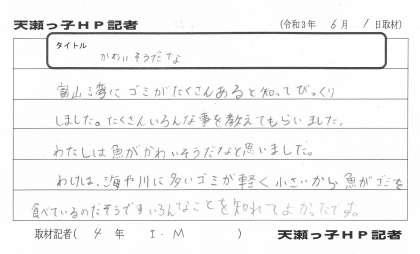 天瀬っ子HP記者 (令和3年 6月 1日取材)
タイトル
かわいそうだな
富山湾にゴミがたくさんあると知ってびっくり
しました。たくさんいろんな事を教えてもらいました。
わたしは魚がかわいそうだなと思いました。
わけは、海や川に多いゴミが軽く小さいから魚がゴミを
食べているのだそうですいろんなことを知れてよかったです。
取材記者( 4 年 I.M ) 天瀬っ子HP記者